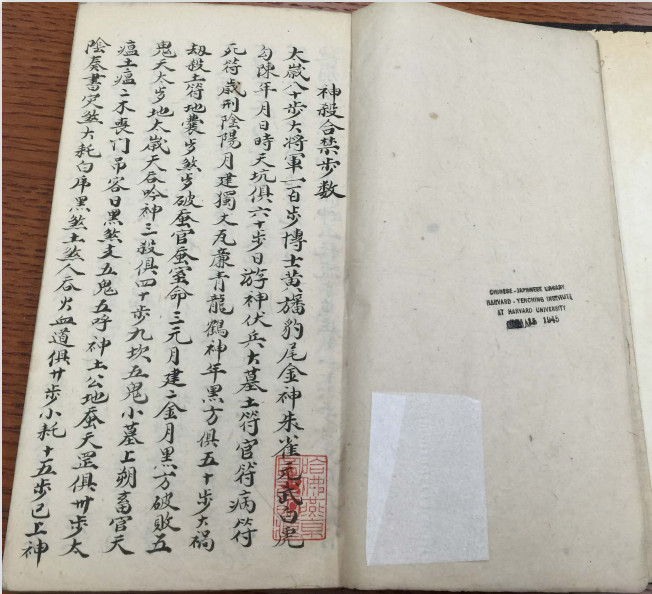 神殺合禁步数
太歲八十步大将軍一百步博士黄旛豹尾金神朱雀元武白虎
勾陳年月日時天坑俱六十步日游神伏兵大墓土符官符病符
死符歲刑陰陽月建獨火瓦廉青龍鶴神年黑方俱五十步大禍
刼殺土符地囊歩煞歩破蚕官蚕室命三元月建二金月黑方破敗五
鬼天太歩地太歲天吞吟神三殺俱四十步九坎五鬼小墓上朔畜官天
瘟土瘟二木喪门吊客日黑煞支五鬼五呼神土公地蚕天罡俱卅步太
陰奏書灾煞大耗白虎黑煞土煞人吞火血道俱廿步小耗十五步已上神
CHINESE-JAPANESE LIBRARY
HARVARD-YENCHING INSTITUTE
AT HARVARD UNIVERSITY
1945